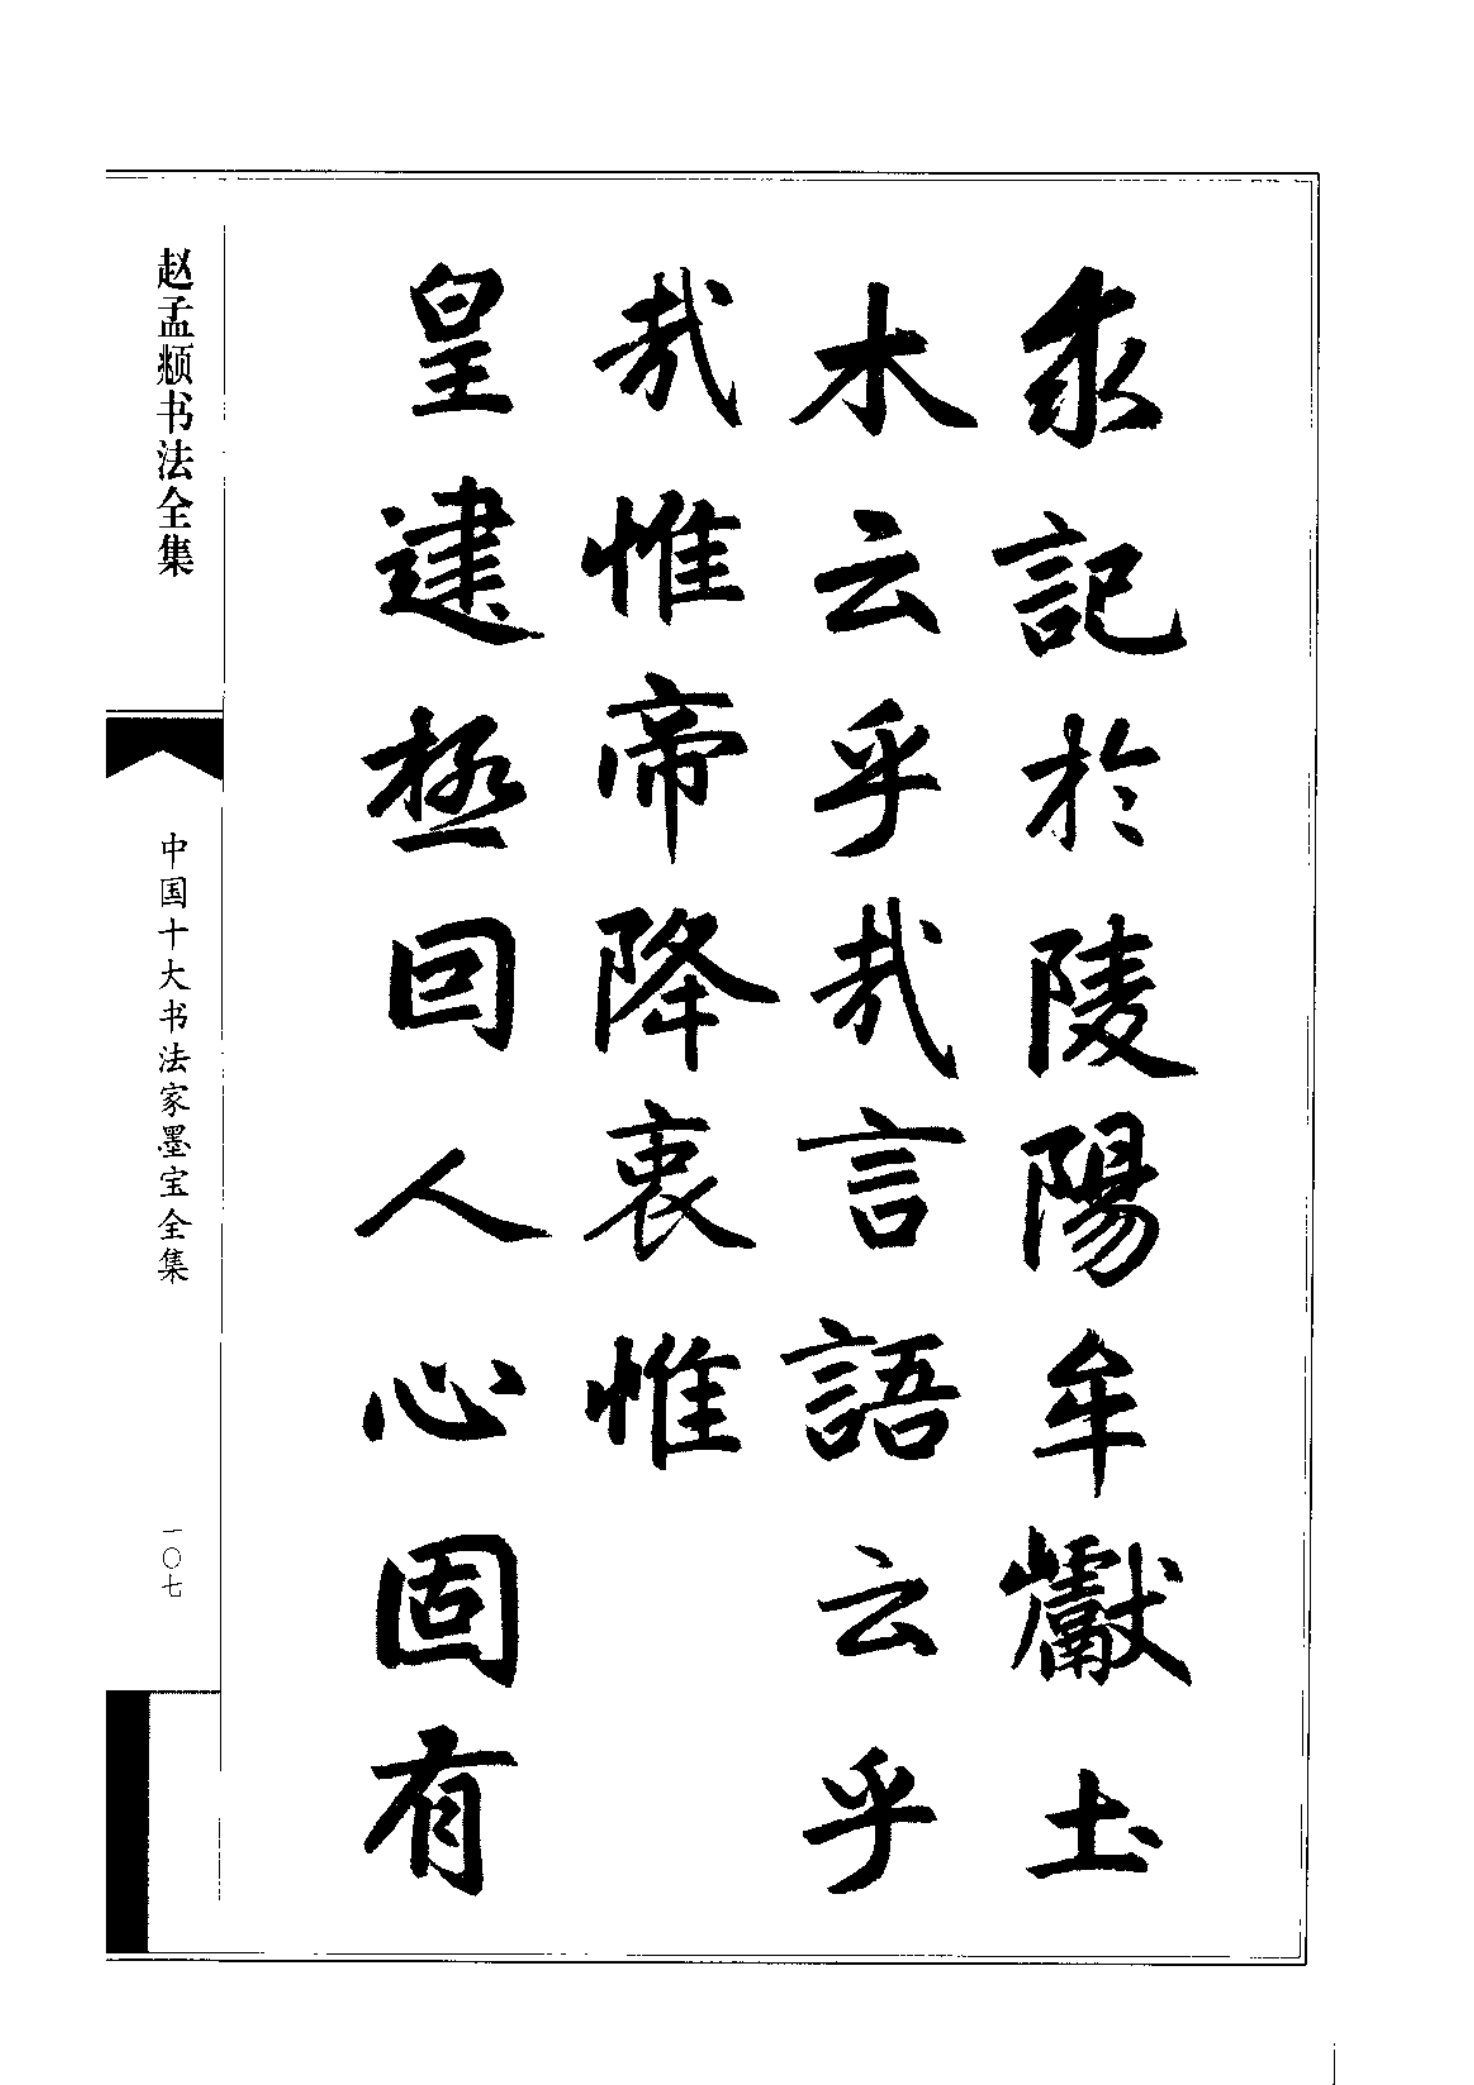 求記於陵陽牟巘土
木云乎哉言語云乎
哉惟帝降衷惟
皇建極回人心固有
赵孟頫书法全集
中国十大书法家墨宝全集
一〇七